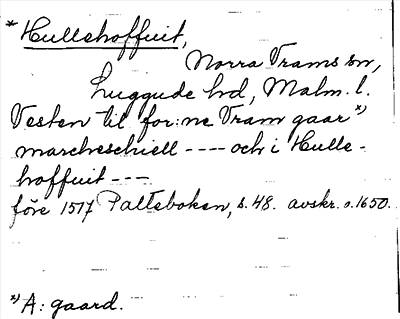 * Hullehoffuit,
Norra Vrams sn,
Luggude hd, Malm. l.
Vesten til for:ne Vram gaar *)
marcheschiell ---- och i Hulle-
hoffuit ---
före 1517 Palteboken, s. 48. avskr. o. 1650.
*) A: gaard.